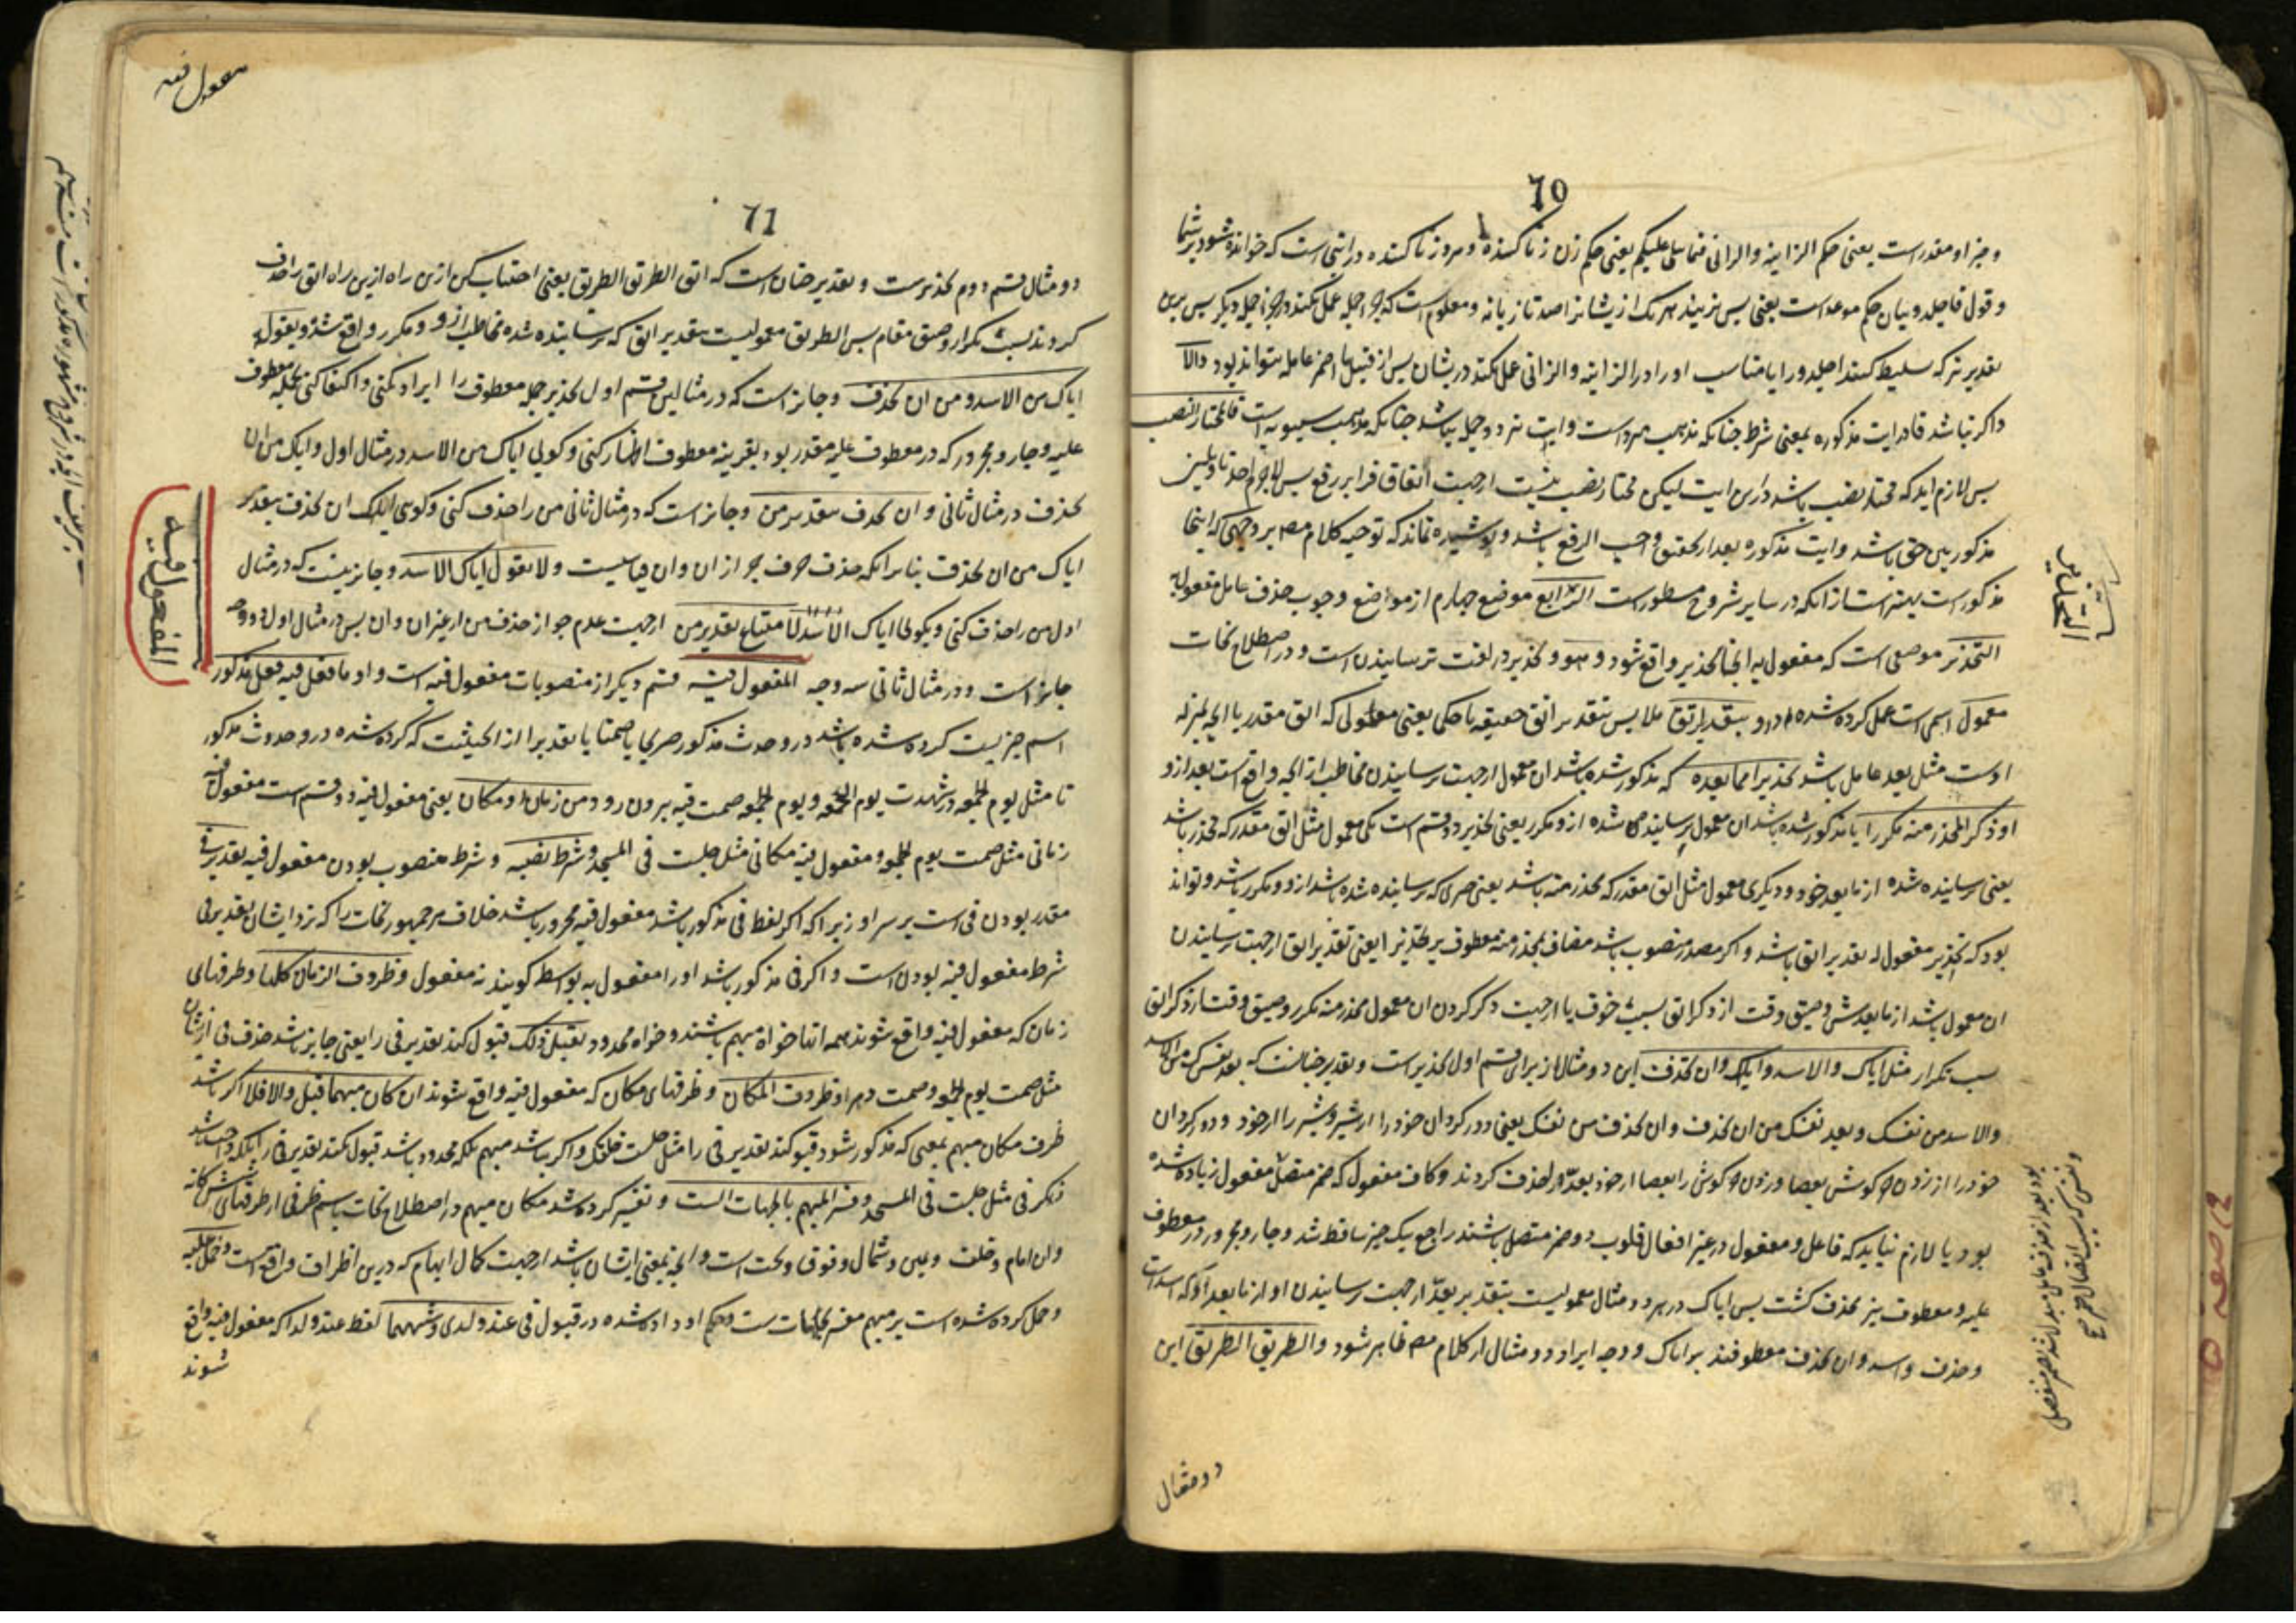 70
و جز او مقدر است یعنی حکم الزانیة والزانی فیما یتلی علیکم یعنی حکم زن زنا کننده و مرد زنا کننده در اینی است که خوانده شود بر شما
و قول فاجلدو بیان حکم موعد است یعنی پس بزنید هر یک از یشانرا صد تازیانه و معلوم است که جزء جمله عمل نکند در جزء جمله دیگر پس بدین
تقدیر نیز که تسلیط کنند اجلدو را یا مناسب او را در الزانیة والزانی عمل نکند دریشان پس از قبیل ما اضمر عامله نتواند بود والا
و اگر نباشد فا در ایت مذکوره بمعنی شرط چنانکه مذهب مبرد است و ایت نیز دو جمله نباشد چنانکه مذهب سیبویه است فالمختار النصب
پس لازم آید که مختار نصب باشد درین ایت لیکن مختار نصب نیست از جهت اتفاق قرا بر رفع پس لاجرم احد تاویلین
مذکورین حق باشد و ایت مذکوره بعد از تحقیق واجب الرفع باشد و پوشیده نماند که توجیه کلام مص بر وجهی که اینجا
مذکور است بهتر است از انکه در سایر شروح مسطور است الرابع موضع چهارم از مواضع وجوب حذف عامل مفعول به
التحذیر موضعی است که مفعول به انجا تحذیر واقع شود و هو و تحذیر در لغت ترسانیدن است و در اصطلاح نحات
معمول اسمی است عمل کرده شده در و بتقدیر اتق ملابس بتقدیر اتق حقیقة یا حکما یعنی معمولی که اتق مقدر یا انچه بمنزله
اوست مثل بعد عامل باشد تحذیرا مما بعده که مذکور شده باشد ان معمول از جهت ترسانیدن مخاطب از انچه واقع است بعد از و
او ذکر المحذر منه مکررا یا مذکور شده باشد ان معمول ترسانیده شده از و مکرر یعنی تحذیر دو قسم است یکی معمول مثل اتق مقدر که محذر باشد
یعنی ترسانیده شده از ما بعد خود و دیگری معمول مثل اتق مقدر که محذر منه باشد یعنی چیزی که ترسانیده شده باشد از و و مکرر باشد و تواند
بود که تحذیر مفعول له تقدیر اتق باشد و اگر مصدر منصوب باشد مضاف بمحذر منه معطوف بر تحذیرا یعنی تقدیر اتق از جهت ترسانیدن
ان معمول باشد از ما بعدش و ضیق وقت از ذکر اتق بسبب خوف یا از جهت ذکر کردن ان معمول محذر منه مکرر و ضیق وقت از ذکر اتق
بسبب تکرار مثل ایاک والاسد و ایاک وان تحذف این دو مثال از برای قسم اول تحذیر است و تقدیر چنانست که بعد نفسک من الاسد
والاسد من نفسک و بعد نفسک من ان تحذف وان تحذف من نفسک یعنی دور گردان خود را از شیر و شیر را از خود و دور گردان
خود را از زدن خرگوش بعصا و زدن خرگوش را بعصا از خود بعد را حذف کردند و کاف مفعول که ضمیر متصل مفعول زیاده شده
بود یا لازم نیاید که فاعل و مفعول در غیر افعال قلوب دو ضمیر متصل باشند راجع بیک چیز ساقط شد و جار و مجرور در معطوف
علیه و معطوف نیز محذف گشت پس ایاک در هر دو مثال معمولیست بتقدیر بعد از جهت ترسانیدن او از ما بعد او که اسد است
و حذف و اسد وان تحذف معطوفند بر ایاک و وجه ایراد دو مثال از کلام مص ظاهر شود والطریق الطریق این
دو مثال
التحذیر
71
معمول فیه
دو مثال قسم دوم تحذیرست و تقدیر چنان است که اتق الطریق الطریق یعنی اجتناب کن ازین راه ازین راه اتق را حذف
کردند بسبب تکرار و ضیق مقام پس الطریق معمولیست بتقدیر اتق که ترسانیده شده مخاطب از و و مکرر واقع شده و یقول
ایاک من الاسد و من ان تحذف و جایز است که در مثالین قسم اول تحذیر جمله معطوف را ایراد نکنی و اکتفا کنی بجمله معطوف
علیه و جار و مجرور که در معطوف علیه مقدر بود بقرینه معطوف اظهار کنی و گویی ایاک من الاسد در مثال اول و ایاک من ان
تحذف در مثال ثانی و ان تحذف بتقدیر من و جایز است که در مثال ثانی من را حذف کنی و گویی ایاک ان تحذف بتقدیر
ایاک من ان تحذف بنابر انکه حذف حرف جر از ان وان قیاسیست ولا تقول ایاک الاسد و جایز نیست که در مثال
اول من را حذف کنی و بگوئی ایاک الاسد لامتناع تقدیر من از جهت عدم جواز حذف من از غیر ان وان پس در مثال اول دو وجه
جایز است و در مثال ثانی سه وجه المفعول فیه قسم دیگر از منصوبات مفعول فیه است و او ما فعل فیه فعل مذکور
اسم چیزیست کرده شده باشد در و حدث مذکور صریحا یا ضمنا یا تقدیرا از ان حیثیت که کرده شده در و حدوث مذکور
تا مثل یوم الجمعه در شهدت یوم الجمعه و یوم الجمعه صمت فیه بیرون رود من زمان او مکان یعنی مفعول فیه دو قسم است مفعول فیه
زمانی مثل صمت یوم الجمعه و مفعول فیه مکانی مثل جلست فی المسجد و شرط نصبه و شرط منصوب بودن مفعول فیه تقدیر فی
مقدر بودن فی است بر سر او زیرا که اگر لفظ فی مذکور باشد مفعول فیه مجرور باشد خلاف مر جمهور نحات را که نزد ایشان تقدیر فی
شرط مفعول فیه بودن است و اگر فی مذکور باشد او را مفعول به بواسطه گویند نه مفعول و ظروف الزمان کلها و ظرفهای
زمان که مفعول فیه واقع شوند همه انها خواه مبهم باشند و خواه محدود تقبل ذلک قبول کند تقدیر فی را یعنی جایز باشد حذف فی از ایشان
مثل صمت یوم الجمعه و صمت دهرا و ظروف المکان و ظرفهای مکان که مفعول فیه واقع شوند ان کان مبهما قبل والا فلا اگر باشد
ظرف مکان مبهم بمعنی که مذکور شود قبول کند تقدیر فی را مثل جلست خلفک و اگر نباشد مبهم بلکه محدود باشد قبول نکند تقدیر فی را بلکه واجب باشد
ذکر فی مثل جلست فی المسجد و فسر المبهم بالجهات الست و تفسیر کرده شد مکان مبهم در اصطلاح نحات باسم ظرفی از ظرفهای شش گانه
وان امام و خلف و یمین و شمال و فوق و تحت است و انچه بمعنی ایشان باشد از جهت کمال ابهام که درین اطراف واقع است و حمل علیه
و حمل کرده شده است بر مبهم مفسر بجهات ست و حکم او داده شده در قبول فی عند ولدی و شبههما لفظ عند و لدا که مفعول فیه واقع
شوند
المفعول فیه